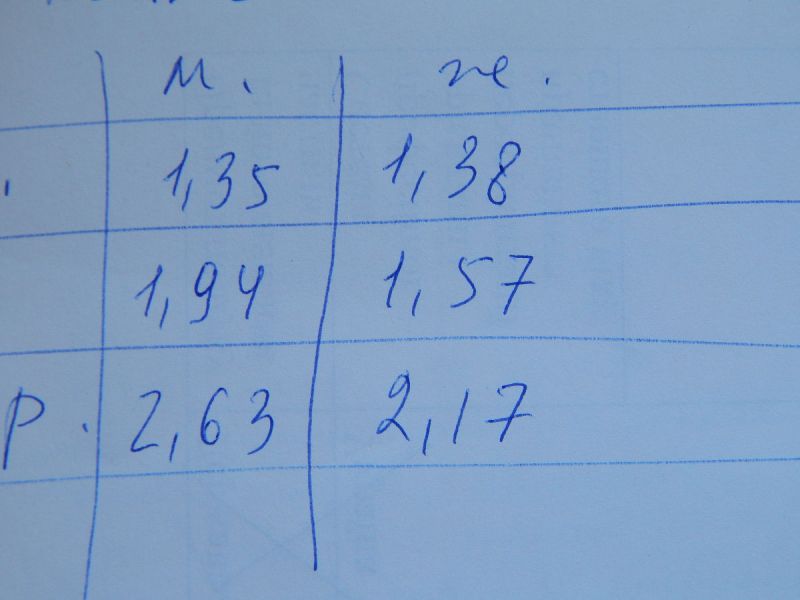 м. ж.
. 1,35 1,38
1,94 1,57
р. 2,63 2,17